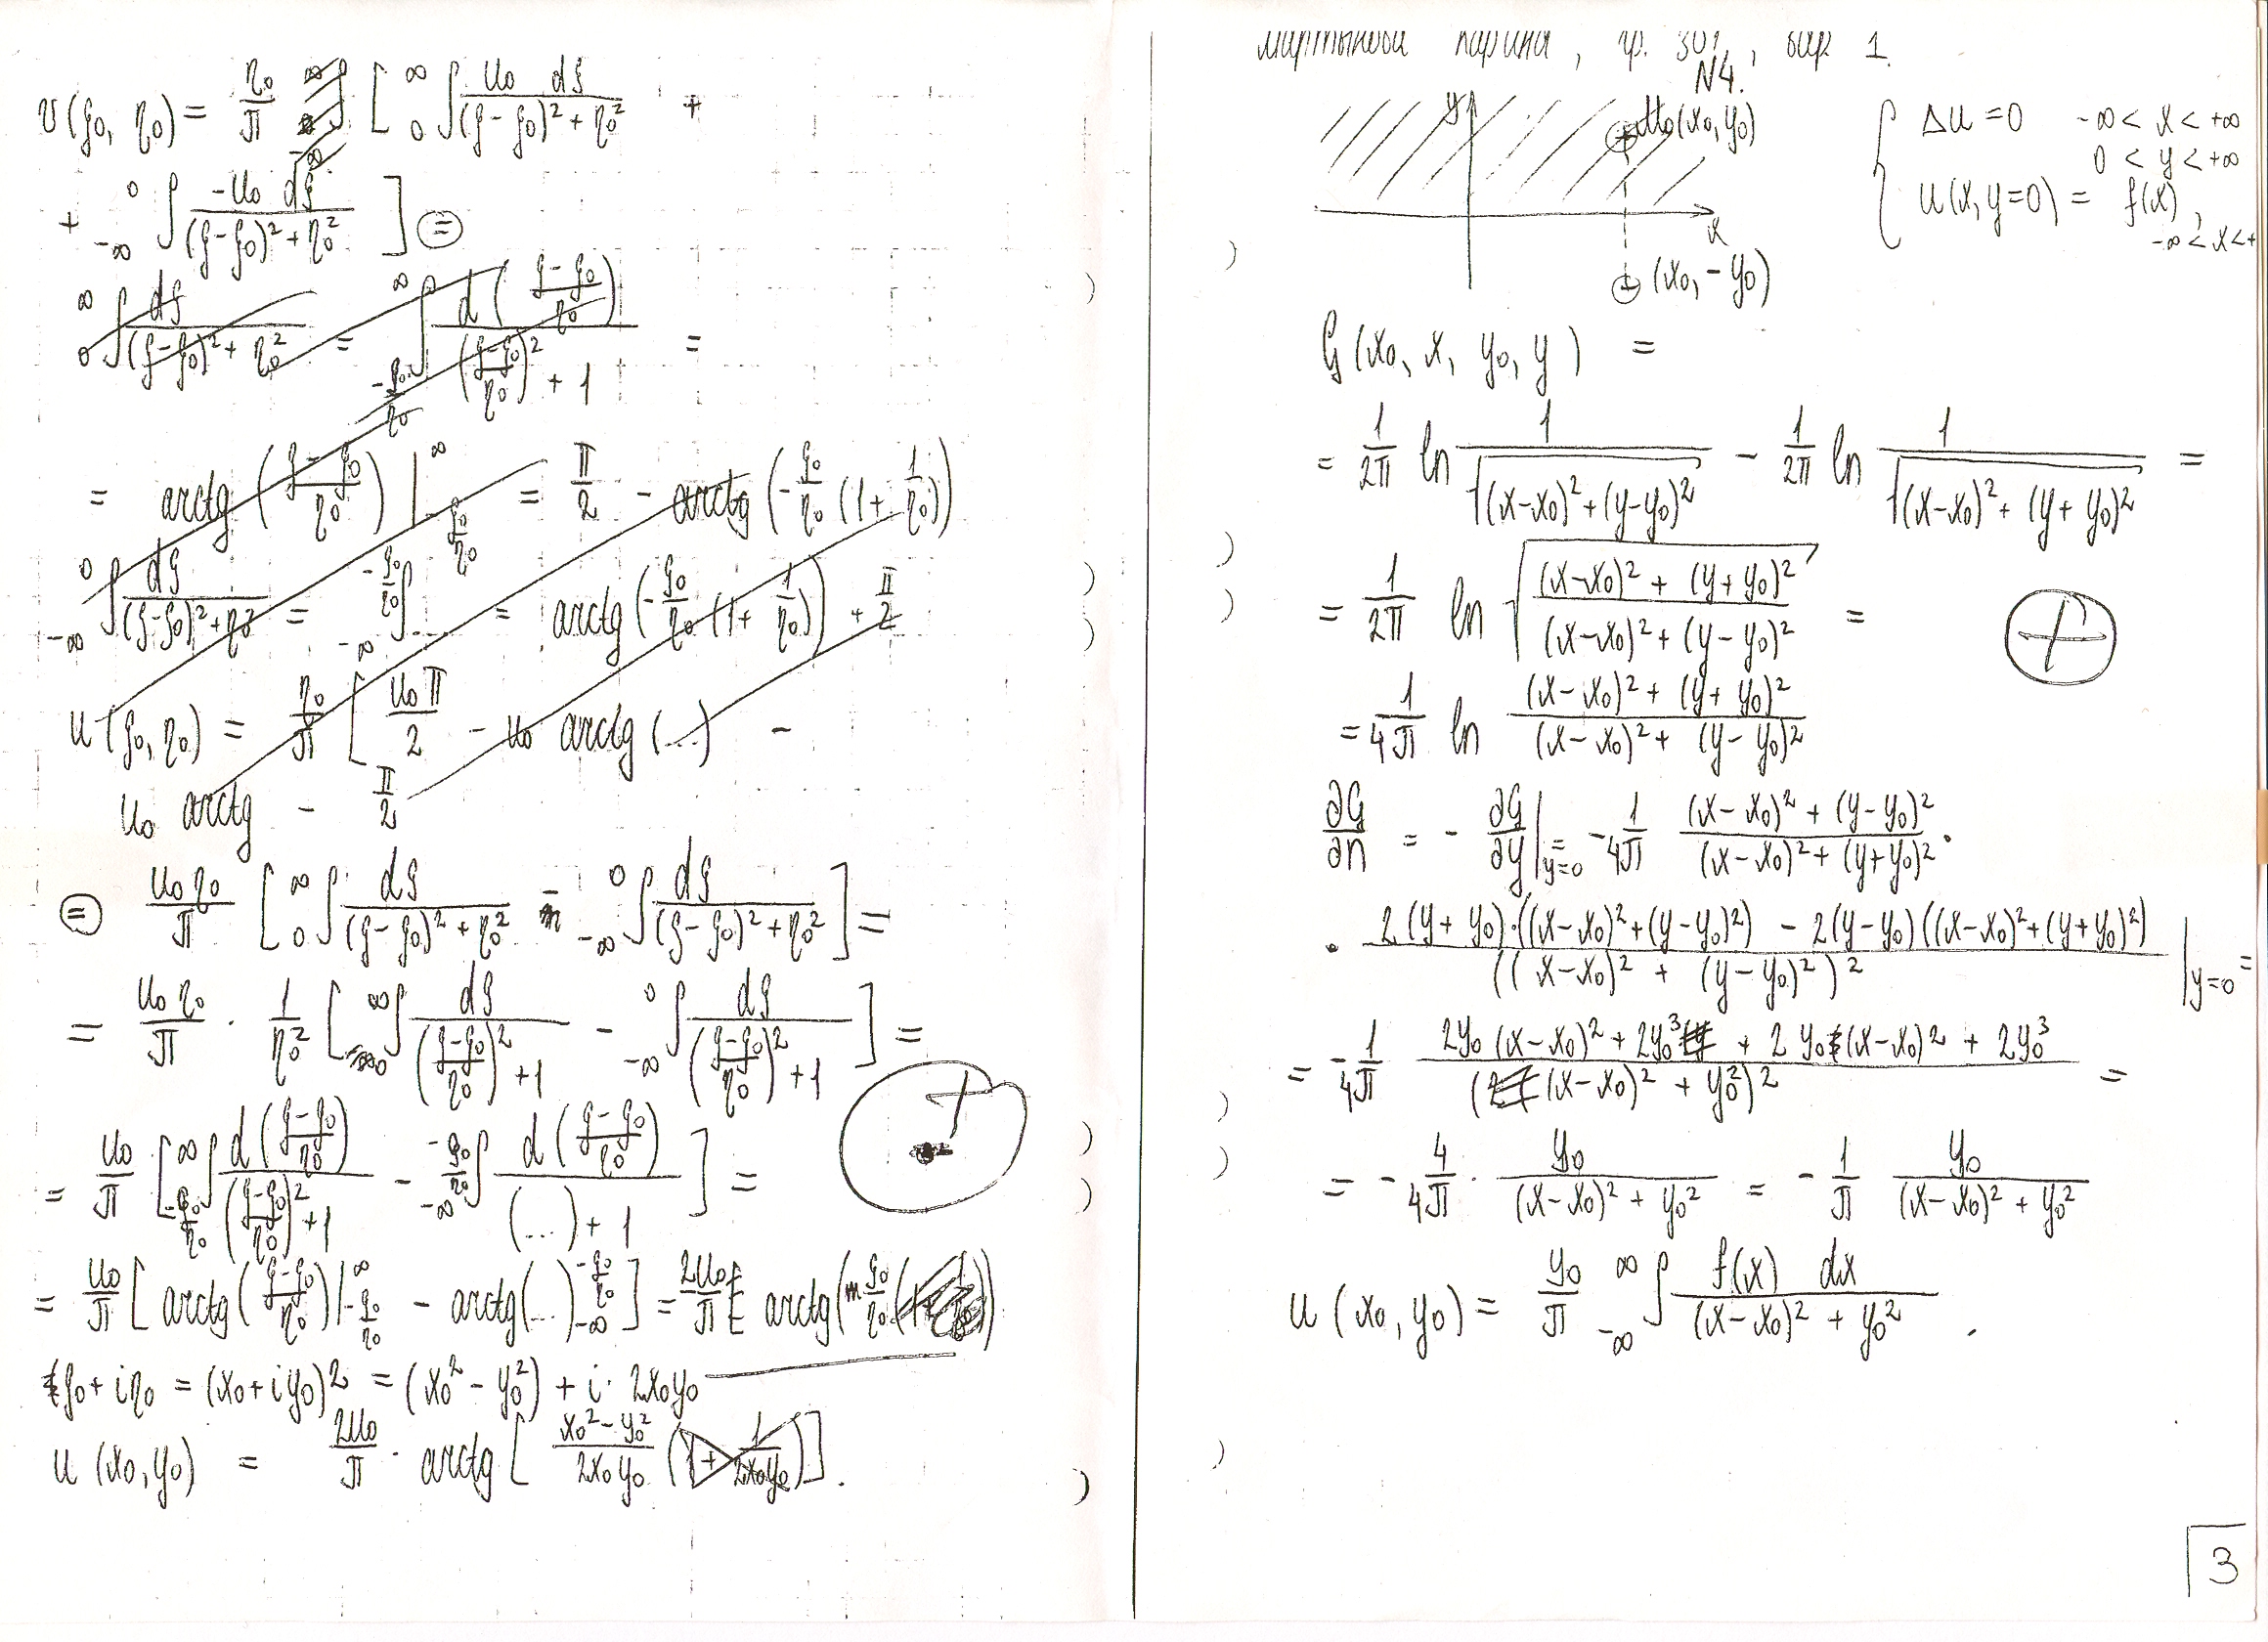 υ(ξ₀, η₀) = η₀/π [ ₀∫^∞ u₀ dξ/((ξ-ξ₀)²+η₀²) +
+ ₋∞∫⁰ -u₀ dξ/((ξ-ξ₀)²+η₀²) ] ⊜
₀∫^∞ dξ/((ξ-ξ₀)²+η₀²) = ∫^∞_{-ξ₀/η₀} d((ξ-ξ₀)/η₀)/(((ξ-ξ₀)/η₀)²+1) =
= arctg((ξ-ξ₀)/η₀)|^∞_{-ξ₀/η₀} = π/2 - arctg(-ξ₀/η₀ (1+1/η₀))
₋∞∫⁰ dξ/((ξ-ξ₀)²+η₀²) = ₋∞∫^{-ξ₀/η₀} ... = arctg(-ξ₀/η₀ (1+1/η₀)) + π/2
u(ξ₀, η₀) = η₀/π [ u₀π/2 - u₀ arctg(...) -
u₀ arctg - π/2
⊜ u₀η₀/π [ ₀∫^∞ dξ/((ξ-ξ₀)²+η₀²) - ₋∞∫⁰ dξ/((ξ-ξ₀)²+η₀²) ] =
= u₀η₀/π · 1/η₀² [ ₀∫^∞ dξ/(((ξ-ξ₀)/η₀)²+1) - ₋∞∫⁰ dξ/(((ξ-ξ₀)/η₀)²+1) ] =
= u₀/π [ ∫^∞_{-ξ₀/η₀} d((ξ-ξ₀)/η₀)/(((ξ-ξ₀)/η₀)²+1) - ₋∞∫^{-ξ₀/η₀} d((ξ-ξ₀)/η₀)/((...)+1) ] =
= u₀/π [ arctg((ξ-ξ₀)/η₀)|^∞_{-ξ₀/η₀} - arctg(...)^{-ξ₀/η₀}_{-∞} ] = 2u₀/π arctg(ξ₀/η₀)
ξ₀+iη₀ = (x₀+iy₀)² = (x₀²-y₀²)+i·2x₀y₀
u(x₀,y₀) = 2u₀/π · arctg[ (x₀²-y₀²)/(2x₀y₀) (1+1/(2x₀y₀)) ].
Мартынова Карина, гр. 301, вар 1.
N4.
y
M₀(x₀,y₀)
x
(x₀,-y₀)
{ Δu = 0 -∞ < x < +∞
0 < y < +∞
u(x,y=0) = f(x),
-∞ < x < +
G(x₀, x, y₀, y) =
= 1/2π ln 1/√((x-x₀)²+(y-y₀)²) - 1/2π ln 1/√((x-x₀)²+(y+y₀)²) =
= 1/2π ln √(((x-x₀)²+(y+y₀)²)/((x-x₀)²+(y-y₀)²)) =
+
= 1/4π ln ((x-x₀)²+(y+y₀)²)/((x-x₀)²+(y-y₀)²)
∂G/∂n = - ∂G/∂y|_{y=0} = -1/4π ((x-x₀)²+(y-y₀)²)/((x-x₀)²+(y+y₀)²) ·
· (2(y+y₀)·((x-x₀)²+(y-y₀)²) - 2(y-y₀)((x-x₀)²+(y+y₀)²))/((x-x₀)²+(y-y₀)²)² |_{y=0} =
= -1/4π (2y₀(x-x₀)²+2y₀³ + 2y₀(x-x₀)²+2y₀³)/((x-x₀)²+y₀²)² =
= - 4/4π · y₀/((x-x₀)²+y₀²) = - 1/π y₀/((x-x₀)²+y₀²)
u(x₀,y₀) = y₀/π ₋∞∫^∞ f(x) dx/((x-x₀)²+y₀²).
3